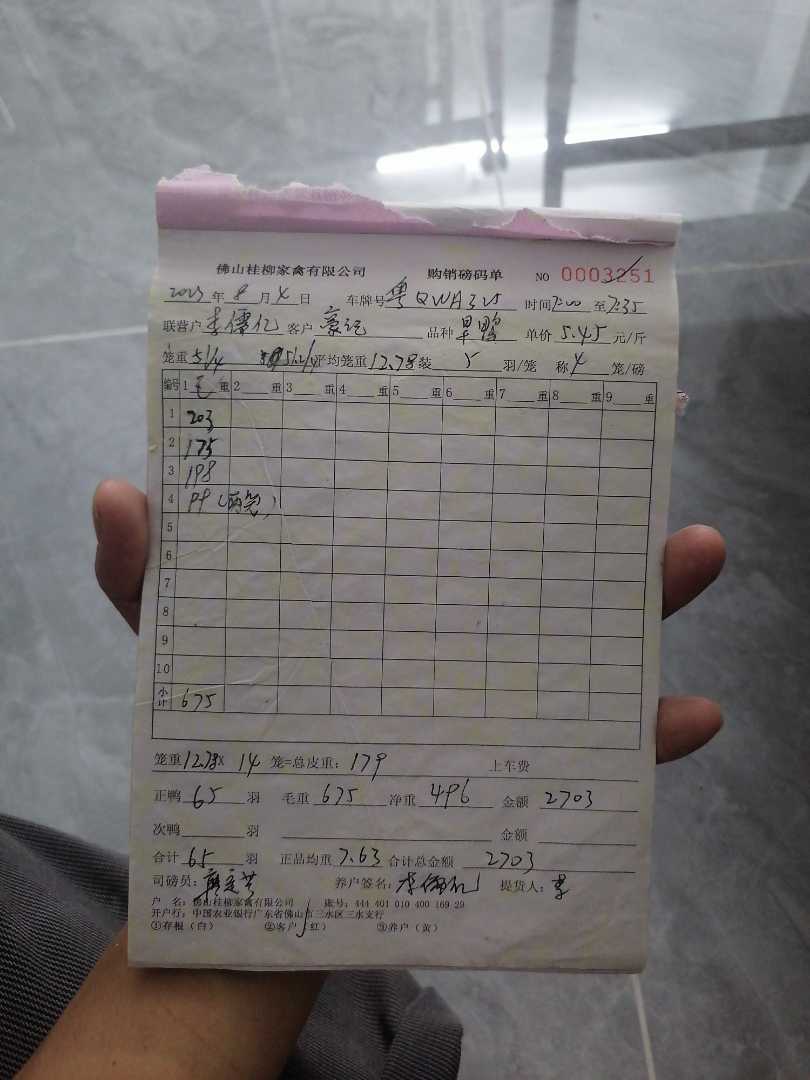 佛山桂柳家禽有限公司 购销磅码单 NO 0003251
2023 年 8 月 4 日 车牌号 粤QWA3 时间7:00 至7:35
联营户 李儒亿 客户 豪记 品种 旱鸭 单价 5.45 元/斤
笼重 51/4 平均笼重 12.78 装 5 羽/笼 称 4 笼/磅
编号 1 毛 重 2 重 3 重 4 重 5 重 6 重 7 重 8 重 9 重
1 203
2 175
3 198
4 99(两笼)
5
6
7
8
9
10
小计 675
笼重 12.78× 14 笼=总皮重: 179 上车费
正鸭 65 羽 毛重 675 净重 496 金额 2703
次鸭 羽 金额
合计 65 羽 正品均重 7.63 合计总金额 2703
司磅员: 养户签名: 李儒亿 提货人: 李
户 名: 佛山桂柳家禽有限公司 账号: 444 401 010 400 169 29
开户行: 中国农业银行广东省佛山市三水区三水支行
①存根(白) ②客户(红) ③养户(黄)